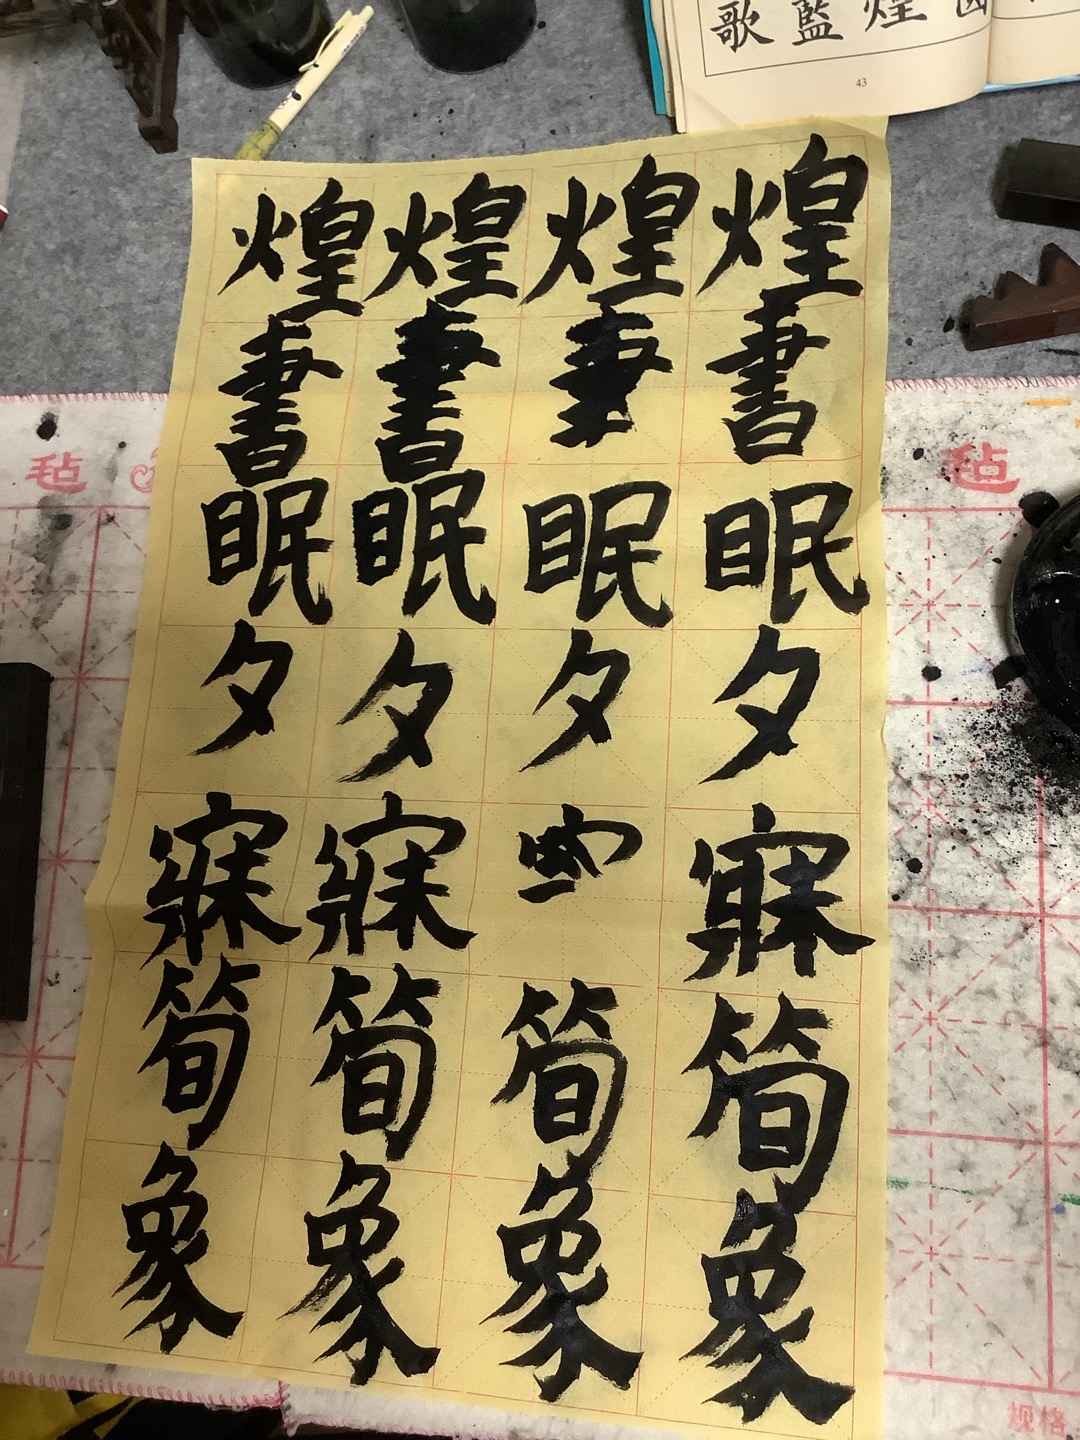 煌書眠夕寐筍象
煌眠夕筍象
煌書眠夕寐筍象
煌書眠夕寐筍象
煌
藍
歌
43
毡
毡
规格